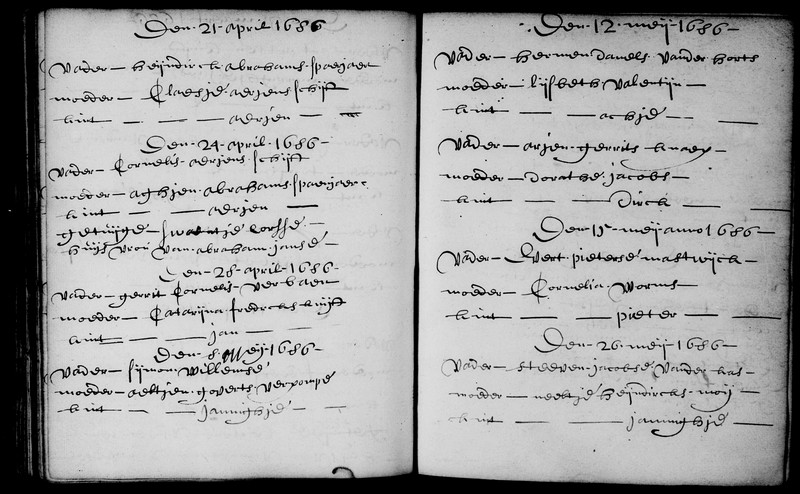 Den 21 april 1686
vader — heijndirck abrahams spaejaer
moeder — Claesje adriens schift
kint — — — adrien —
Den 24 april 1686 —
vader — Cornelis adriens schift
moeder — aghjen abrahams spaeijaer
kint — — adrien —
getuijge swaentje corsse —
huijs vrou van abraham janse —
Den 28 april 1686 —
vader — gerrit Cornelis ver
moeder — Catarijna fredricks
kint — — jan —
Den 8 Meij 1686 —
vader — sijmon willemse
moeder — aeltjen goverts verpompe
kint — — janninghje — —
Den 12 meij 1686 —
vader — hermen danels vander horts
moeder — lijsbeth valentijn —
kint — — achje — —
vader — arjen gerrits knaep —
moeder — dorathe jacobs —
kint — — dirck — —
Den 15 meij anno 1686 —
vader — Evert pieterse mastwijck —
moeder — Cornelia worms —
kint — — pieter — —
Den 26 meij 1686 —
vader — steeven jacobse vander kas —
moeder — neeltje heijndircks moij —
kint — — janninghje —